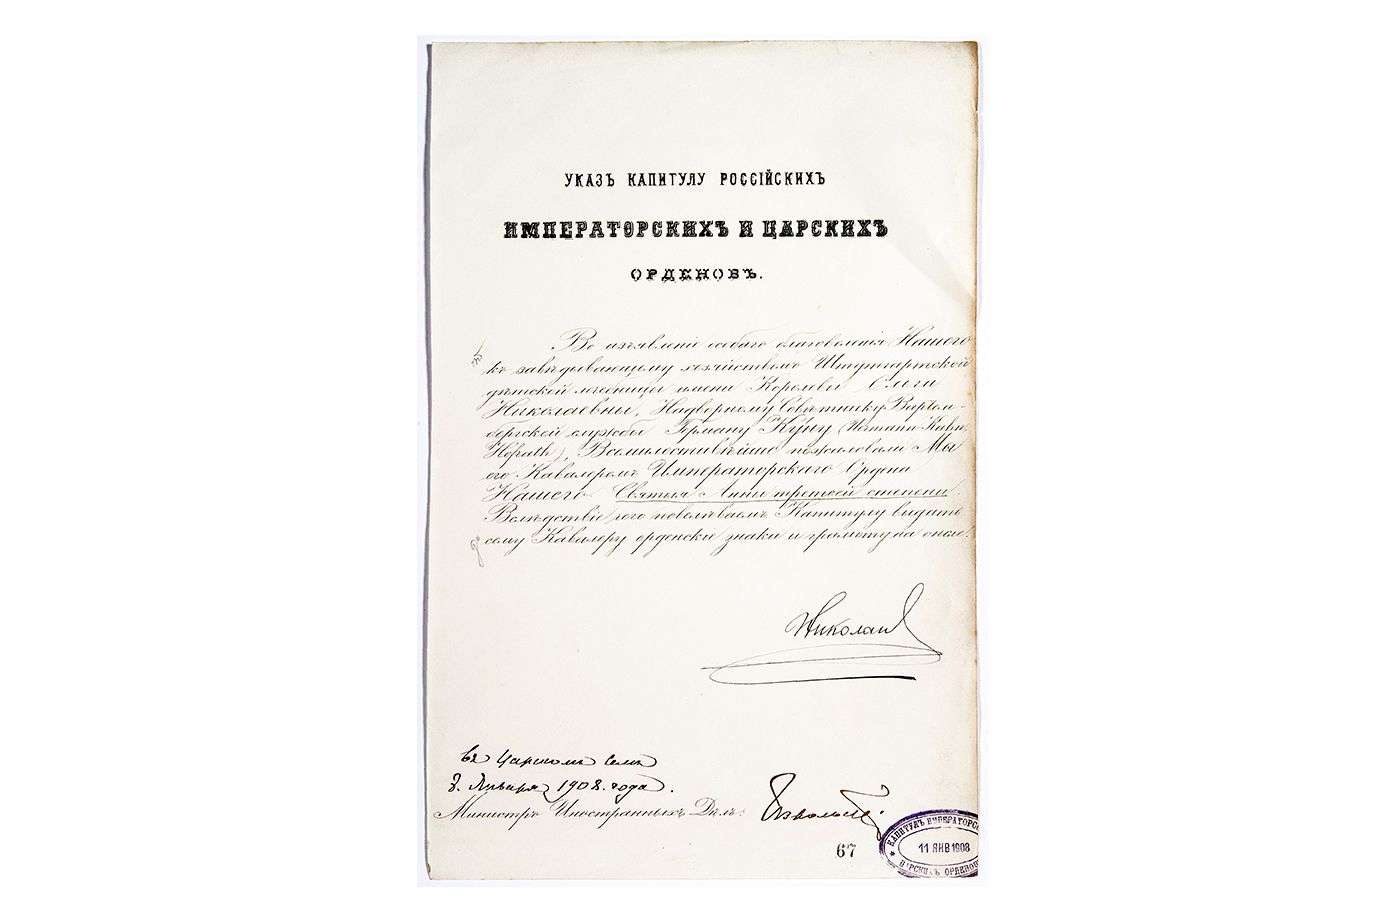 УКАЗЪ КАПИТУЛУ РОССІЙСКИХЪ
ИМПЕРАТОРСКИХЪ И ЦАРСКИХЪ
ОРДЕНОВЪ.
Въ изъявленіе особаго благоволенія Нашего
къ завѣдывающему хозяйствомъ Штутгартской
дѣтской лечебницы имени Королевы Ольги
Николаевны, Надворному Совѣтнику Виртем-
бергской службы Герману Куну (Hermann Kuhn,
Всемилостивѣйше пожаловали Мы
его Кавалеромъ Императорскаго Ордена
Нашего Святыя Анны третьей степени.
Вслѣдствіе чего повелѣваемъ Капитулу выдать
сему Кавалеру орденскіе знаки и грамоту на оные.
Николай
въ Царскомъ Селѣ
Января 1908 года.
Министръ Иностранныхъ Дѣлъ:
Извольскій
67
КАПИТУЛЪ ИМПЕРАТОРС
11 ЯНВ 1908
ЦАРСКИХЪ ОРДЕНО